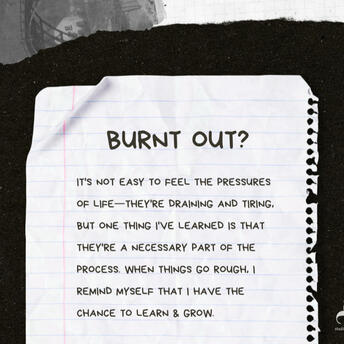 BURNT OUT?
IT'S NOT EASY TO FEEL THE PRESSURES
OF LIFE—THEY'RE DRAINING AND TIRING,
BUT ONE THING I'VE LEARNED IS THAT
THEY'RE A NECESSARY PART OF THE
PROCESS. WHEN THINGS GO ROUGH, I
REMIND MYSELF THAT I HAVE THE
CHANCE TO LEARN & GROW.